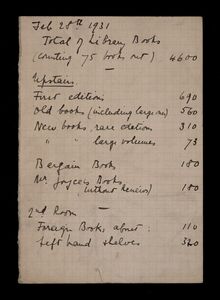 Feb 28th 1931
Total of Library Books
(counting 75 books out) 4600
Upstairs
First editions 690
Old books (including large ones) 560
New books, rare editions 310
" " large volumes 73
Bargain Books 180
Mr Joyce's Books
(without Reviews) 180
2nd Room
Foreign Books about: 110
Left hand shelves 520